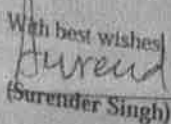 With best wishes
Surend
(Surender Singh)